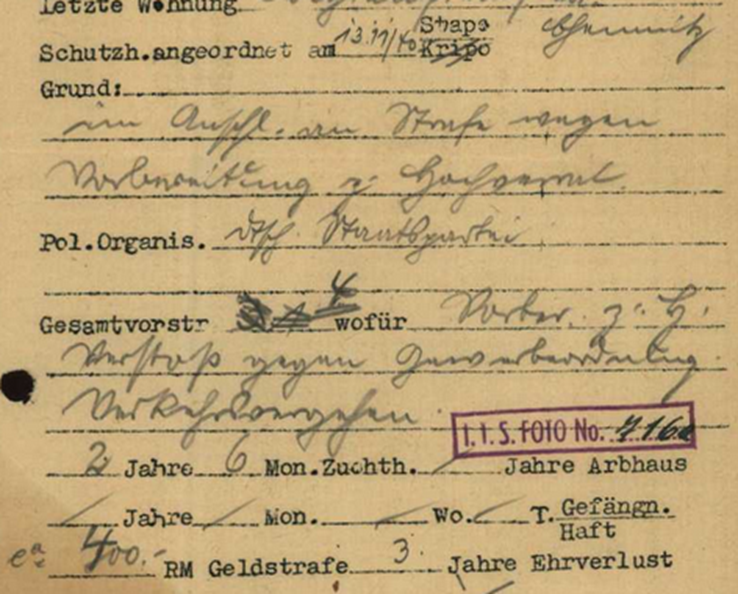 Letzte Wohnung
Schutzh.angeordnet am 13.11/40 Stapo Chemnitz
Kripo
Grund:
im Anschl. an Strafe wegen
Vorbereitung z. Hochverrat
Pol.Organis. dtsch. Staatspartei
Gesamtvorstr 4 wofür Vorber. z. H.
Verstoß gegen Gewerbeordnung.
Verkehrsvergehen.
I.T.S. FOTO No. 716
2 Jahre 6 Mon.Zuchth. / Jahre Arbhaus
/ Jahre / Mon. / Wo. / T. Gefängn.
Haft
ca. 400.- RM Geldstrafe 3. Jahre Ehrverlust